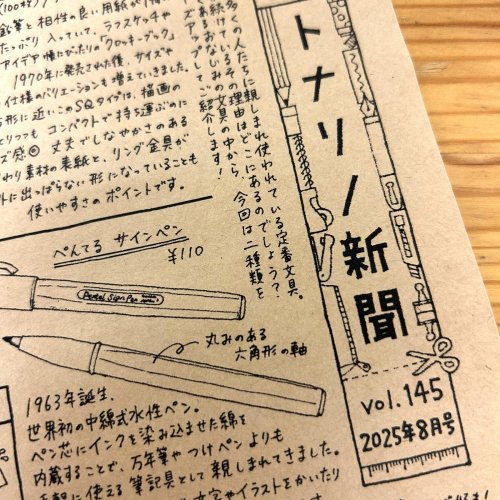 トナリノ新聞
vol.145
2025年8月号
多くの人たちに親しまれ使われている定番文具。
続けているその理由はどこにあるのでしょう?
の文具の中から、今回は二種類を
ズアップしてご紹介します!
(100枚)
鉛筆と相性の良い用紙が
たっぷり入っていて、ラフスケッチや
アイデア帳にぴったりの「クロッキーブック」
1970年に発売された後、サイズや
仕様のバリエーションも増えていきました。
形に近いこのSQタイプは、描画の
とりつつもコンパクトで持ち運ぶのに
ズ感◎丈夫でしなやかさのある
わり素材の表紙と、リング金具が
外に出っぱらない形になっていることも
使いやすさのポイントです。
ぺんてる サインペン
¥110
Pentel Sign Pen
丸みのある
六角形の軸
1963年誕生。
世界初の中綿式水性ペン。
ペン芯にインクを染み込ませた綿を
内蔵することで、万年筆やつけペンよりも
手軽に使える筆記具として親しまれてきました。
文字やイラストをかいたり